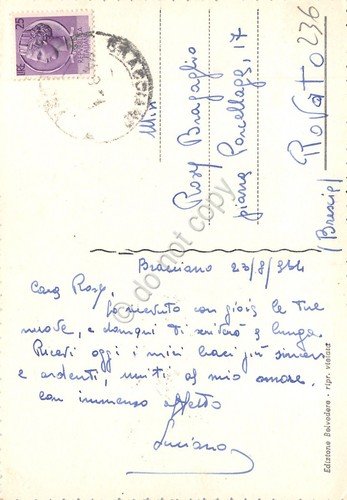 236
L. 25
Miss
Rosy Bragaglio
piazza Porcellaga, 17
Rovato
(Brescia)
Bracciano 23/8/964
Cara Rosy,
ho ricevuto con gioia le tue
nuove, e domani ti scriverò a lungo.
Ricevi oggi i miei baci più sinceri
e ardenti, uniti al mio amore.
con immenso affetto
Luciano
Edizione Belvedere - ripr. vietata
© do not copy